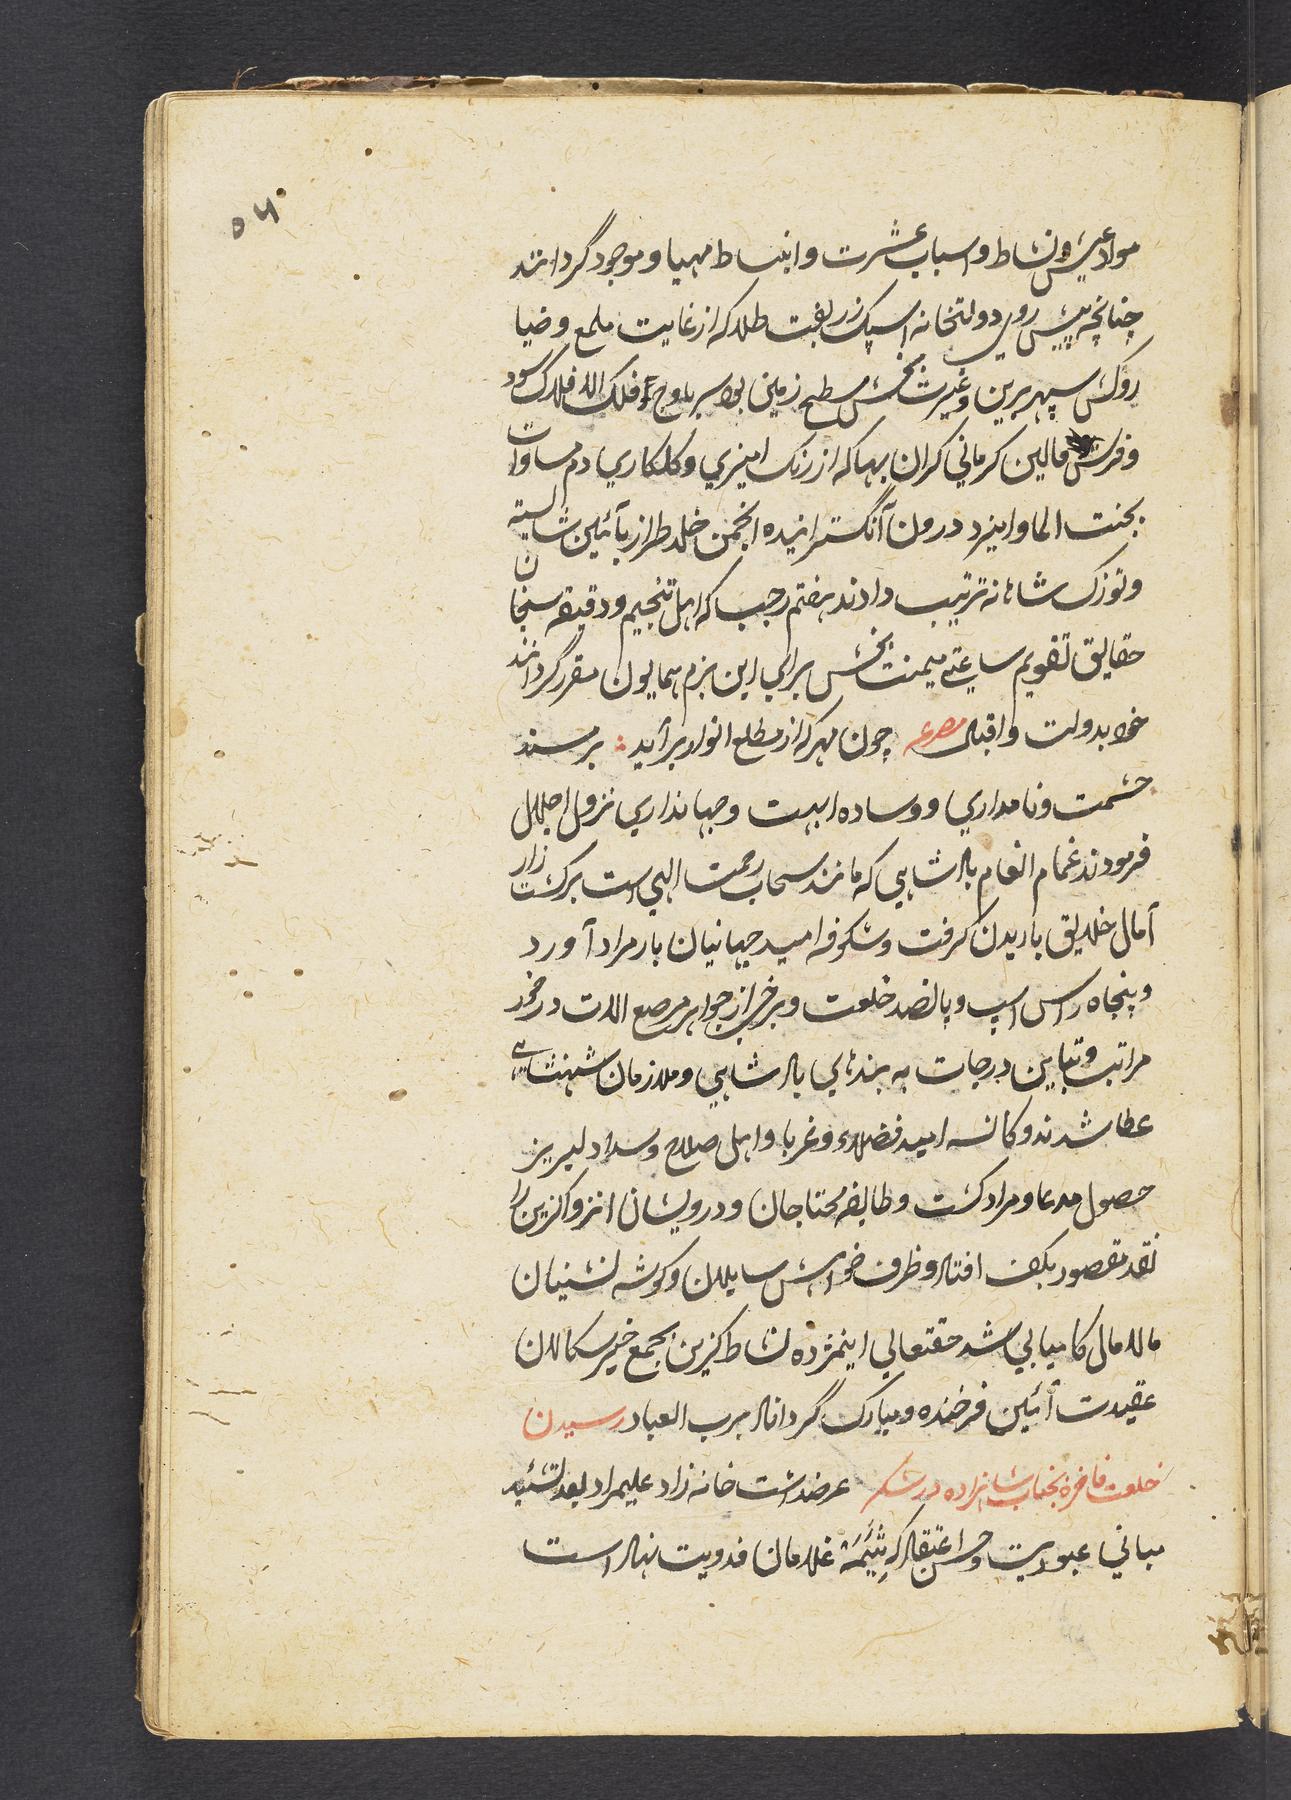 ۵۴
مواد عیش و نشاط و اسباب عشرت و انبساط مهیا و موجود گردانند
چنانچه پیش روی دولتخانه اسپک زربفت طلا که از غایت ملمع و ضیا
روکش سپهر برین و غیرت بخش سطح زمین بود سر باوج فلک الافلاک سود
و فرش قالین کرمانی کران بها که از رنک امیزی و کلکاری دم مساوات
بجنت الماوا میزد درون آن گسترانیده انجمن خلد طراز بآئین شایسته
و توزک شاهانه ترتیب دادند هفتم رجب که اهل تنجیم و دقیقه سنجان
حقایق تقویم ساعتی میمنت بخش برای این بزم همایون مقرر گردانند
خود بدولت و اقبال مصرعه چون مهر که از مطلع انوار برآید : بر مسند
حشمت و نامداری و وساده ابهت و جهانداری نزول اجلال
فرمودند غمام انعام بادشاهی که مانند سحاب رحمت الهی است برکشت زار
آمال خلایق باریدن کرفت و شکوفه امید جهانیان بار مراد آورد
و پنجاه راس اسپ و پانصد خلعت و برخی از جواهر مرصع الات در خور
مراتب و تباین درجات به بندهای بادشاهی و ملازمان شهنشاهی
عطا شدند و کاسه امید فضلاء و غربا و اهل صلاح و سداد لبریز
حصول مدعا و مراد کشت و طایفه محتاجان و درویشان انزوا کزین را
نقد مقصود بکف افتاد و ظرف خواهش سایلان و کوشه نشینان
مالامال کامیابی شد حقتعالی اینمژده نشاط کزین بجمع خیر سکالان
عقیدت آئین فرخنده و مبارک گرداناد برب العباد رسیدن
خلعت فاخره بجناب شاهزاده در شکر عرضداشت خانه زاد علیمراد بعد تشئید
مبانی عبودیت و حسن اعتقاد که شیمه غلامان فدویت نهاد است